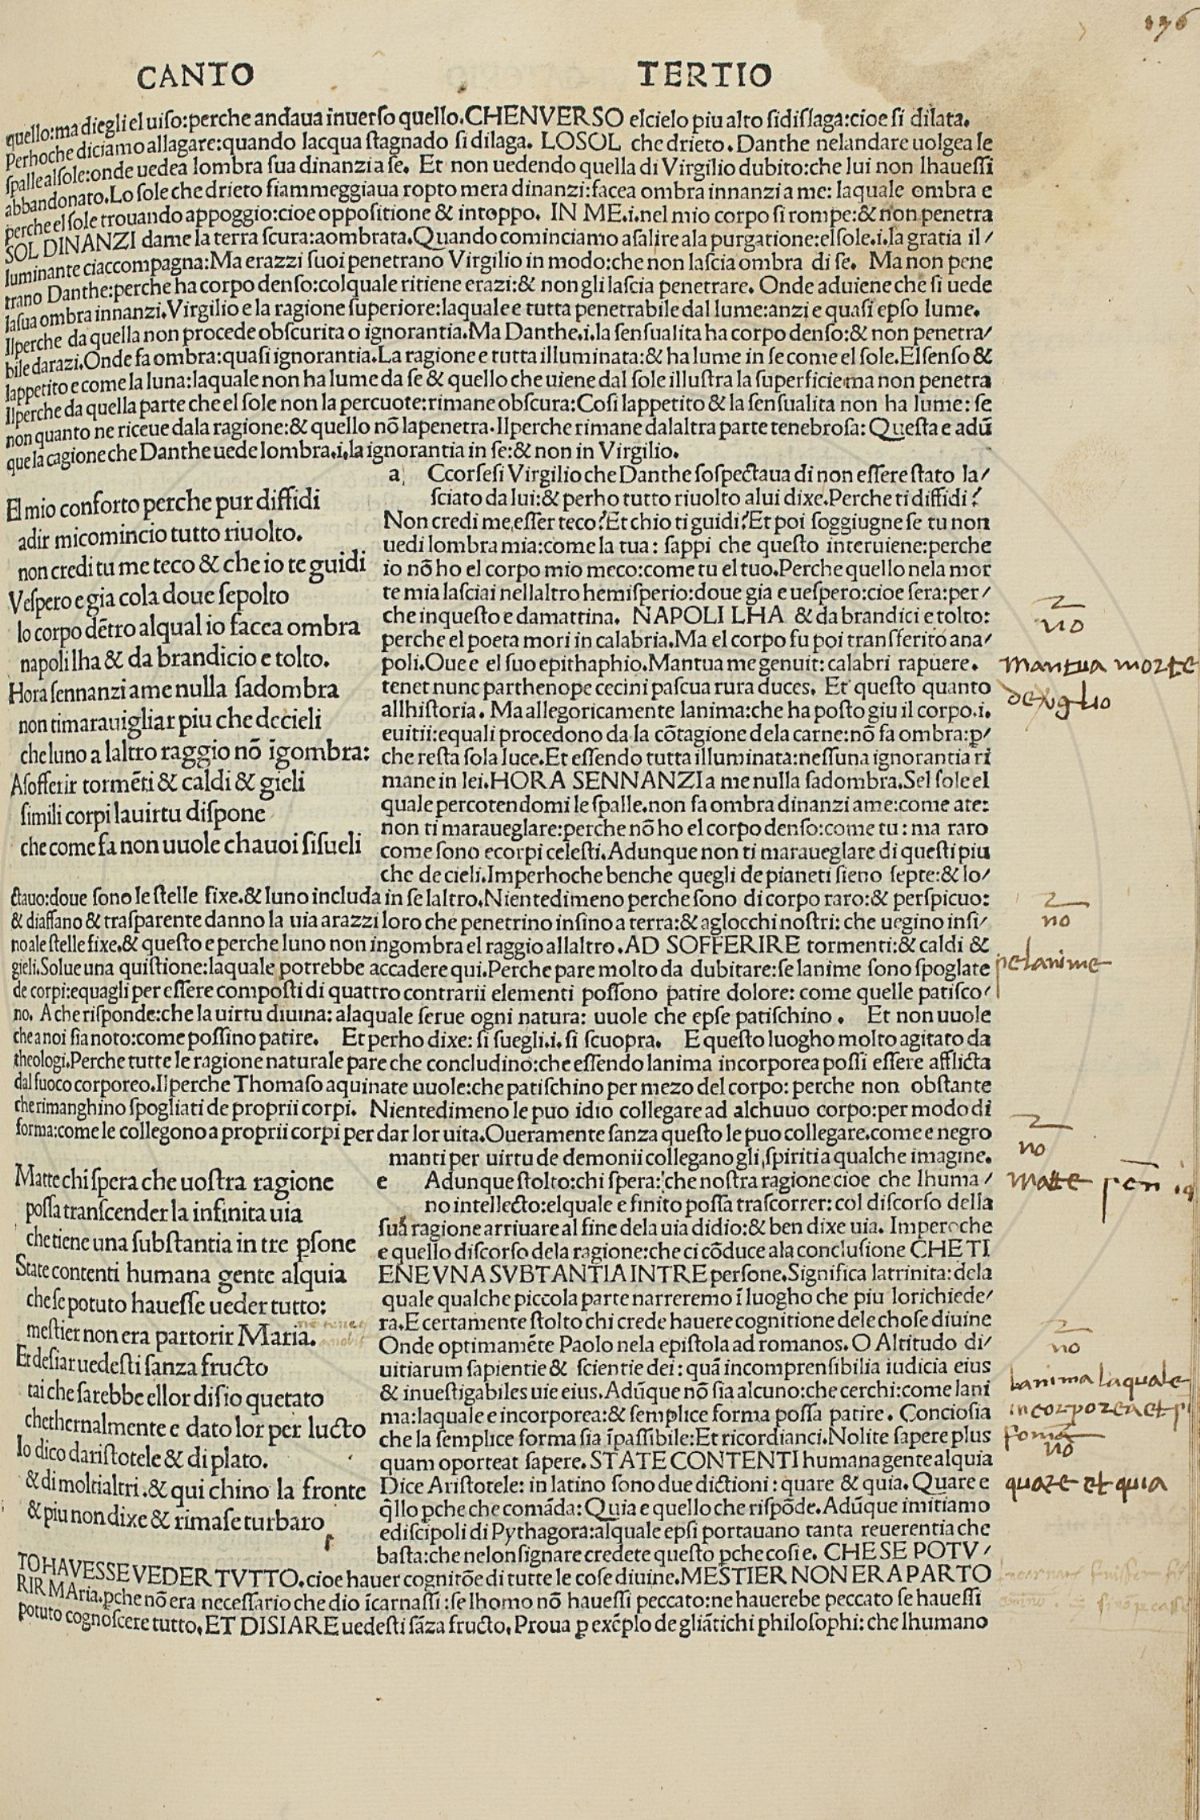 136
CANTO TERTIO
quello:ma diegli el uiso:perche andaua inuerso quello.CHENVERSO elcielo piu alto sidislaga:cioe si dilata.
Perhoche diciamo allagare:quando lacqua stagnado si dilaga. LOSOL che drieto.Danthe nelandare uolgea le
spalle alsole:onde uedea lombra sua dinanzi a se. Et non uedendo quella di Virgilio dubito:che lui non lhauessi
abbandonato.Lo sole che drieto fiammeggiaua ropto mera dinanzi:facea ombra innanzi a me: laquale ombra e
perche el sole trouando appoggio:cioe oppositione & intoppo. IN ME.i.nel mio corpo si rompe:& non penetra
SOL DINANZI dame la terra scura:aombrata.Quando cominciamo asalire ala purgatione:elsole.i.la gratia il/
luminante ciaccompagna:Ma erazzi suoi penetrano Virgilio in modo:che non lascia ombra di se. Ma non pene
trano Danthe:perche ha corpo denso:colquale ritiene erazi:& non gli lascia penetrare. Onde aduiene che si uede
lasua ombra innanzi.Virgilio e la ragione superiore:laquale e tutta penetrabile dal lume:anzi e quasi epso lume.
Ilperche da quella non procede obscurita o ignorantia.Ma Danthe.i.la sensualita ha corpo denso:& non penetra/
bile darazi.Onde fa ombra:quasi ignorantia.La ragione e tutta illuminata:& ha lume in se come el sole.Elsenso &
lappetito e come la luna:laquale non ha lume da se & quello che uiene dal sole illustra la superficie ma non penetra
Ilperche da quella parte che el sole non la percuote:rimane obscura:Cosi lappetito & la sensualita non ha lume: se
non quanto ne riceue dala ragione:& quello nō lapenetra.Ilperche rimane dalaltra parte tenebrosa: Questa e adū
que la cagione che Danthe uede lombra.i.la ignorantia in se:& non in Virgilio.
El mio conforto perche pur diffidi
adir mi comincio tutto riuolto.
non credi tu me teco & che io te guidi
Vespero e gia cola doue sepolto
lo corpo dētro alqual io facea ombra
napoli lha & da brandicio e tolto.
Hora sennanzi a me nulla sadombra
non ti marauigliar piu che decieli
che luno a laltro raggio nō īgombra:
Asofferir tormēti & caldi & gieli
simili corpi lauirtu dispone
che come fa non uuole chauoi si sueli
a Ccorsesi Virgilio che Danthe sospectaua di non essere stato la/
sciato da lui:& perho tutto riuolto alui dixe.Perche ti diffidi?
Non credi me esser teco?Et chio ti guidi?Et poi soggiugne se tu non
uedi lombra mia:come la tua: sappi che questo interuiene:perche
io nō ho el corpo mio meco:come tu el tuo.Perche quello nela mor
te mia lasciai nellaltro hemisperio:doue gia e uespero:cioe sera:per/
che inquesto e damattina. NAPOLI LHA & da brandici e tolto:
perche el poeta mori in calabria.Ma el corpo fu poi transferito ana/
poli.Oue e el suo epithaphio.Mantua me genuit: calabri rapuere.
tenet nunc parthenope cecini pascua rura duces. Et questo quanto
allhistoria. Ma allegoricamente lanima:che ha posto giu il corpo.i.
euitii:equali procedono da la cōtagione dela carne:nō fa ombra:p/
che resta sola luce.Et essendo tutta illuminata:nessuna ignorantia ri
mane in lei.HORA SENNANZI a me nulla sadombra.Sel sole el
quale percotendomi le spalle.non fa ombra dinanzi ame:come ate:
non ti maraueglare:perche nō ho el corpo denso:come tu: ma raro
come sono ecorpi celesti.Adunque non ti maraueglare di questi piu
che de cieli.Imperhoche benche quegli de pianeti sieno septe:& lo/
ctauo:doue sono le stelle fixe.& luno includa in se laltro.Nientedimeno perche sono di corpo raro:& perspicuo:
& diaffano & trasparente danno la uia arazzi loro che penetrino insino a terra:& aglocchi nostri: che uegino insi/
no ale stelle fixe.& questo e perche luno non ingombra el raggio allaltro.AD SOFFERIRE tormenti:& caldi &
gieli.Solue una quistione:laquale potrebbe accadere qui.Perche pare molto da dubitare:se lanime sono spoglate
de corpi:equagli per essere composti di quattro contrarii elementi possono patire dolore: come quelle patisco/
no. A che risponde:che la uirtu diuina: alaquale serue ogni natura: uuole che epse patischino. Et non uuole
che a noi sia noto:come possino patire. Et perho dixe: si suegli.i. si scuopra. E questo luogho molto agitato da
theologi.Perche tutte le ragione naturale pare che concludino:che essendo lanima incorporea possi essere afflicta
dal fuoco corporeo.Ilperche Thomaso aquinate uuole:che patischino per mezo del corpo: perche non obstante
che rimanghino spogliati de proprii corpi. Nientedimeno le puo idio collegare ad alchuuo corpo:per modo di
forma:come le collegono a proprii corpi per dar lor uita.Oueramente sanza questo le puo collegare.come e negro
manti per uirtu de demonii collegano gli spiriti a qualche imagine.
Matte chi spera che uostra ragione
possa transcender la infinita uia
che tiene una substantia in tre psone
State contenti humana gente alquia
che se potuto hauesse ueder tutto:
mestier non era partorir Maria.
Et desiar uedesti sanza fructo
tai che sarebbe ellor disio quetato
chethernalmente e dato lor per lucto
Io dico daristotele & di plato.
& di molti altri.& qui chino la fronte
& piu non dixe & rimase turbaro
e Adunque stolto:chi spera:che nostra ragione cioe che lhuma/
no intellecto:elquale e finito possa trascorrer: col discorso della
sua ragione arriuare al fine dela uia didio:& ben dixe uia. Imperoche
e quello discorso dela ragione:che ci cōduce ala conclusione CHE TI
ENE VNA SVBTANTIA INTRE persone.Significa latrinita:dela
quale qualche piccola parte narreremo ī luogho che piu lo richiede/
ra.E certamente stolto chi crede hauere cognitione dele chose diuine
Onde optimamēte Paolo nela epistola ad romanos.O Altitudo di/
uitiarum sapientie & scientie dei: quā incomprensibilia iudicia eius
& inuestigabiles uie eius.Adūque nō sia alcuno:che cerchi:come lani
ma:laquale e incorporea:& semplice forma possa patire. Conciosia
che la semplice forma sia īpassibile:Et ricordianci.Nolite sapere plus
quam oporteat sapere. STATE CONTENTI humana gente alquia
Dice Aristotele: in latino sono due dictioni: quare & quia. Quare e
q̄llo pche che comāda: Quia e quello che rispōde. Adūque imitiamo
ediscipoli di Pythagora:alquale epsi portauano tanta reuerentia che
basta:che nelonsignare credete questo pche cosi e. CHE SE POTV/
TO HAVESSE VEDER TVTTO.cioe hauer cognitōe di tutte le cose diuine.MESTIER NON ERA PARTO
RIR MAria.pche nō era necessario che dio īcarnassi:se lhomo nō hauessi peccato:ne hauerebe peccato se hauessi
potuto cognoscere tutto.ET DISIARE uedesti sāza fructo.Proua p exēplo de gliātichi philosophi: che lhumano
no
mantua morte
de v̄glio
no
pelanime
no
matte
no
lanima laquale
incorporea et
foma
no
quare et quia